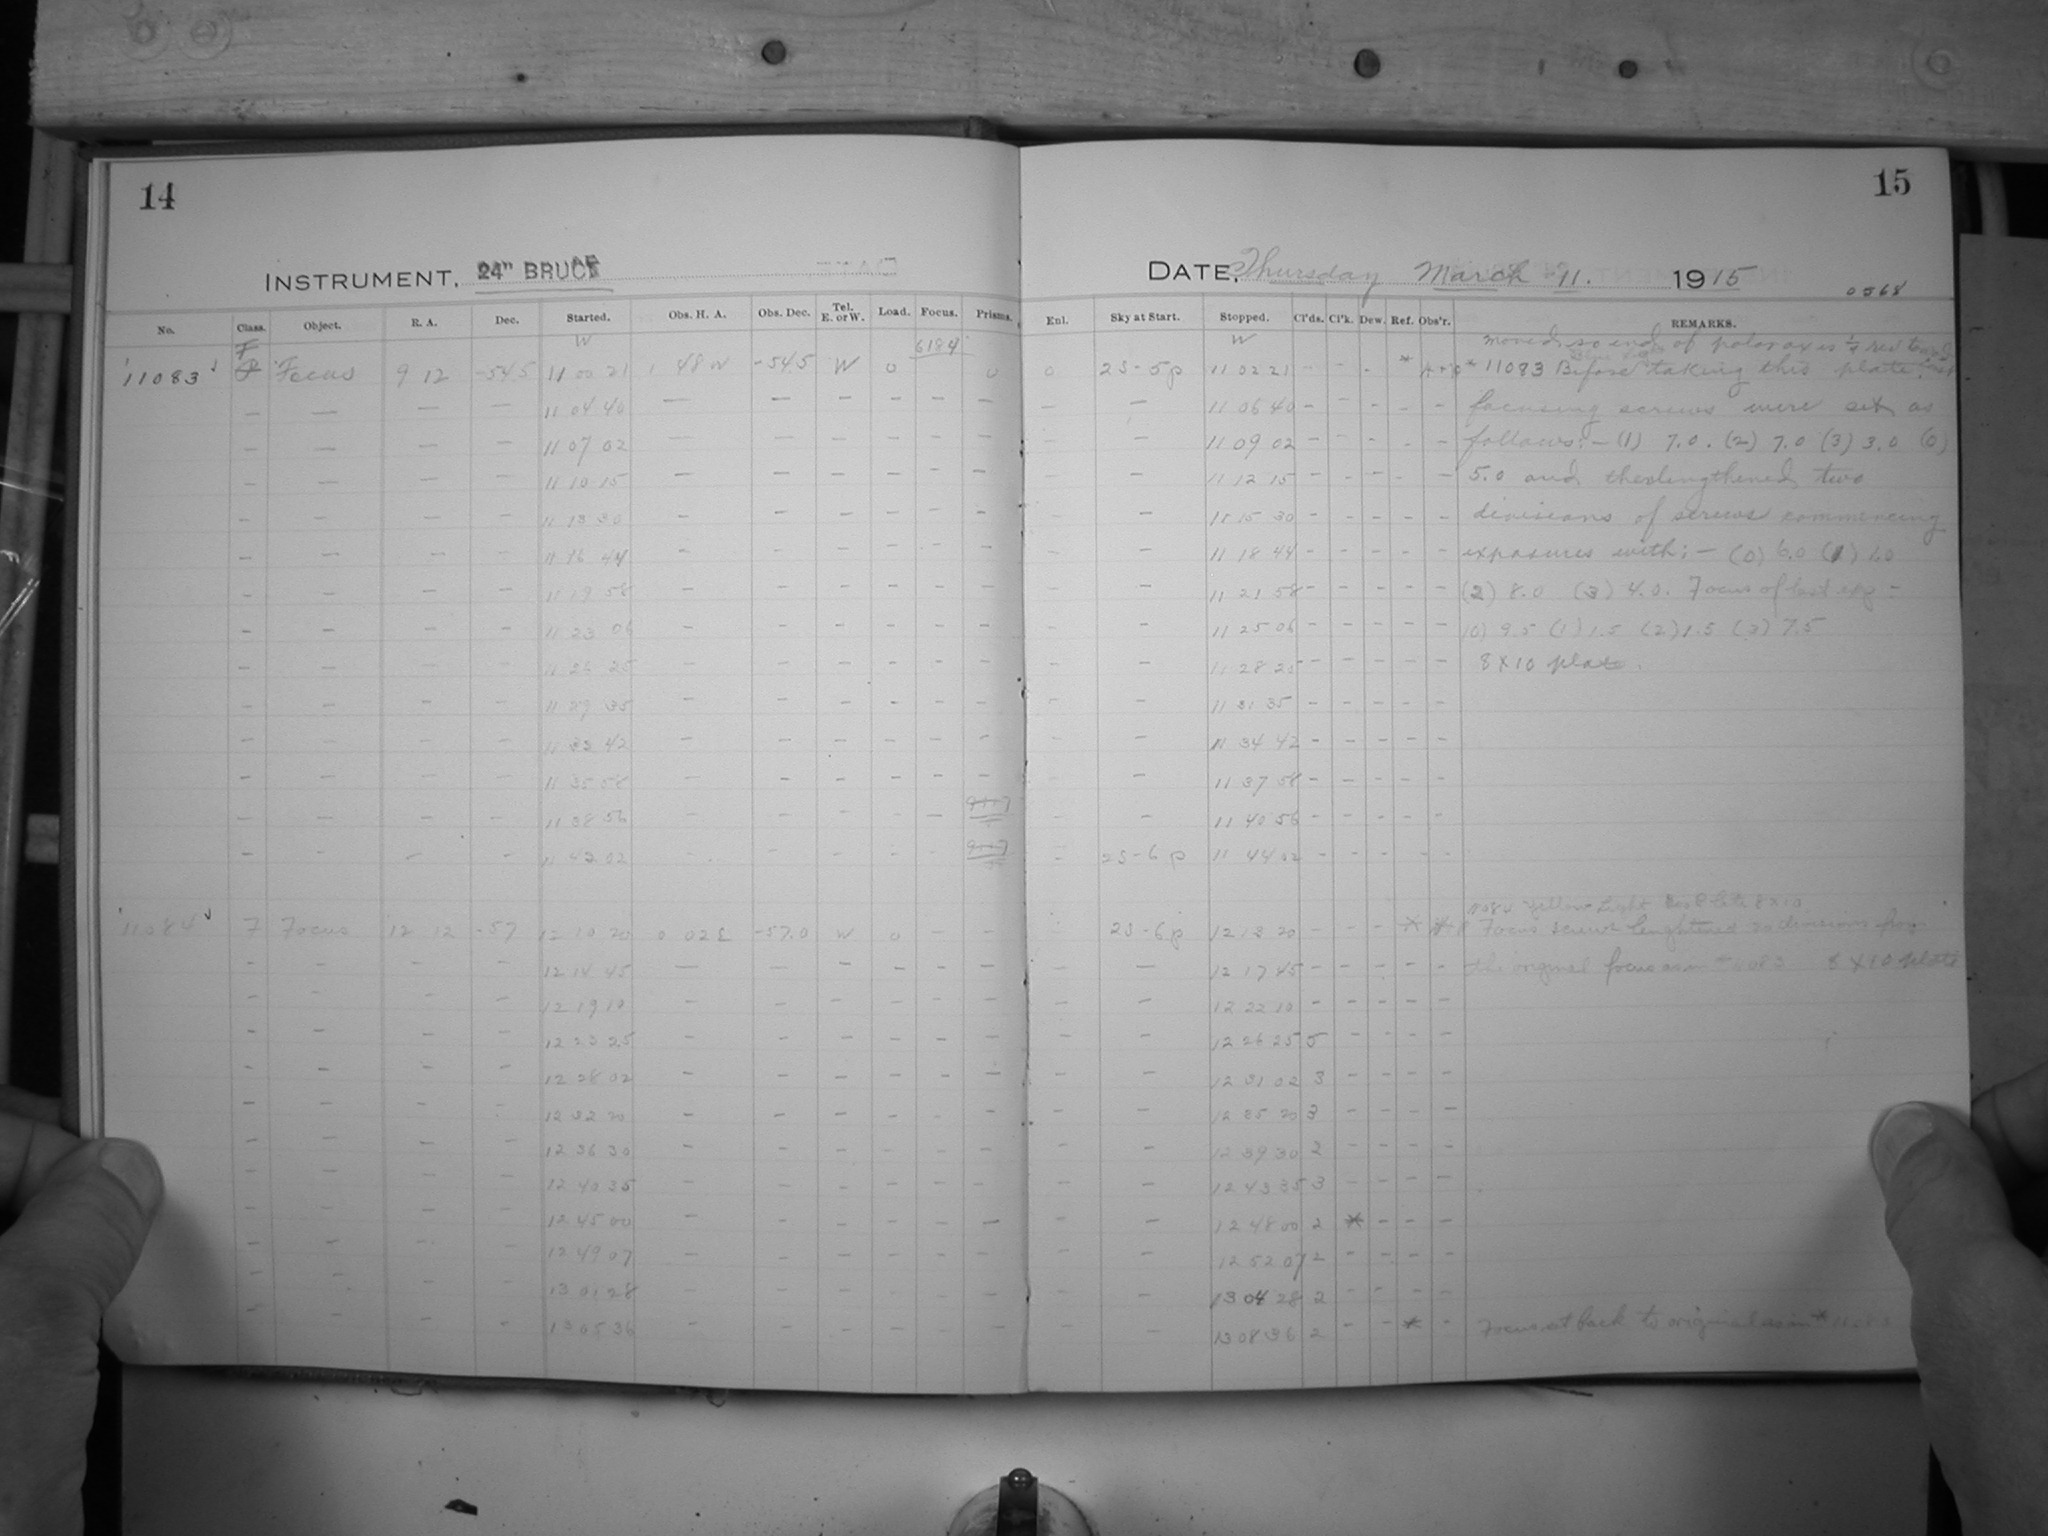 14
15
INSTRUMENT, 24" BRUCE
DATE, Thursday March 11. 1915
No. Class. Object. R. A. Dec. Started. Obs. H. A. Obs. Dec. Tel. E. or W. Load. Focus. Prisms. Enl. Sky at Start. Stopped. Cl'ds. Cl'k. Dew. Ref. Obs'r. REMARKS.
W 6184 W moved so end of polar axis 1/4 rev toward
11083 F Focus 9 12 -54.5 11 00 21 1 48 W -54.5 W 0 0 0 2S-5p 11 02 21 - - - * * 11083 Before taking this plate
— — — — 11 04 40 — — — — — — — — 11 06 40 - - - - - focusing screws were set as
— — — — 11 07 02 — — — — — — — — 11 09 02 - - - - - follows:- (1) 7.0. (2) 7.0 (3) 3.0 (0)
— — — — 11 10 15 — — — — — — — — 11 12 15 - - - - - 5.0 and then lengthened two
— — — — 11 13 30 — — — — — — — — 11 15 30 - - - - - divisions of screws commencing
— — — — 11 16 44 — — — — — — — — 11 18 44 - - - - - exposures with:- (0) 6.0 (1)
— — — — 11 19 58 — — — — — — — — 11 21 58 - - - - - (2) 8.0 (3) 4.0. Focus of last exp -
— — — — 11 23 06 — — — — — — — — 11 25 06 - - - - - (0) 9.5 (1) 1.5 (2) 1.5 (3) 7.5
— — — — 11 26 25 — — — — — — — — 11 28 25 - - - - - 8x10 plate.
— — — — 11 29 35 — — — — — — — — 11 31 35 - - - - -
— — — — 11 32 42 — — — — — — — — 11 34 42 - - - - -
— — — — 11 35 58 — — — — — — — — 11 37 58 - - - - -
— — — — 11 38 56 — — — — — — — 11 40 56 - - - - -
— — — — 11 42 02 — — — — — — 2S-6p 11 44 02 - - - - -
11084 Yellow Light 8x10
11084 F Focus 12 12 -57 12 10 20 0 02 E -57.0 W 0 — — 2S-6p 12 13 20 - - - * Focus screws lengthened divisions from
— — — — 12 14 45 — — — — — — — — 12 17 45 - - - - - the original focus as in 11083 8x10 plate
— — — — 12 19 10 — — — — — — — — 12 22 10 - - - - -
— — — — 12 23 25 — — — — — — — — 12 26 25 5 - - - -
— — — — 12 28 02 — — — — — — — — 12 31 02 3 - - - -
— — — — 12 32 20 — — — — — — — — 12 35 20 3 - - - -
— — — — 12 36 30 — — — — — — — — 12 39 30 2 - - - -
— — — — 12 40 35 — — — — — — — — 12 43 35 3 - - - -
— — — — 12 45 00 — — — — — — — — 12 48 00 2 * - - -
— — — — 12 49 07 — — — — — — — — 12 52 07 2 - - - -
— — — — 13 01 28 — — — — — — — — 13 04 28 2 - - - -
— — — — 13 05 36 — — — — — — — — 13 08 36 2 - - * - Focus set back to original as in * 11083